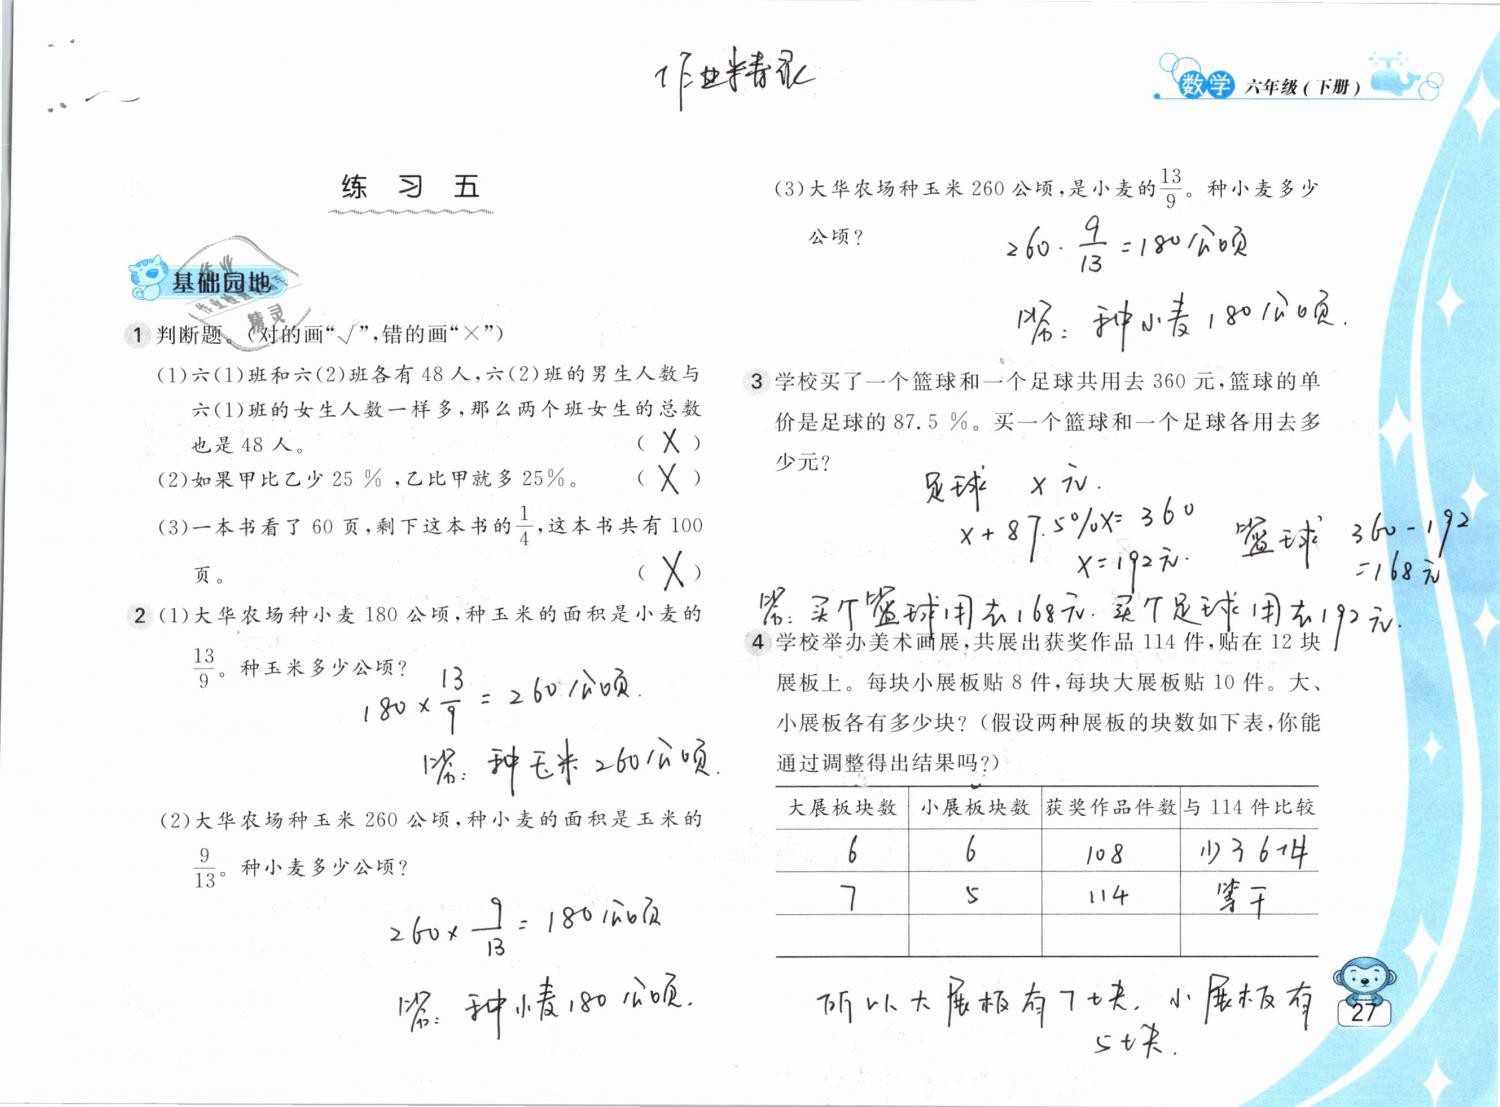 作业精灵
数学 六年级(下册)
练 习 五
基础园地
1 判断题。(对的画“√”,错的画“×”)
(1)六(1)班和六(2)班各有48人,六(2)班的男生人数与
六(1)班的女生人数一样多,那么两个班女生的总数
也是48人。 (X)
(2)如果甲比乙少25%,乙比甲就多25%。 (X)
(3)一本书看了60页,剩下这本书的1/4,这本书共有100
页。 (X)
2 (1)大华农场种小麦180公顷,种玉米的面积是小麦的
13/9。种玉米多少公顷?
180×13/9=260公顷.
答:种玉米260公顷.
(2)大华农场种玉米260公顷,种小麦的面积是玉米的
9/13。种小麦多少公顷?
260×9/13=180公顷
答:种小麦180公顷.
(3)大华农场种玉米260公顷,是小麦的13/9。种小麦多少
公顷?
260·9/13=180公顷
答:种小麦180公顷.
3 学校买了一个篮球和一个足球共用去360元,篮球的单
价是足球的87.5%。买一个篮球和一个足球各用去多
少元?
足球 x元.
x+87.5%x=360
x=192元.
篮球 360-192
=168元
答:买个篮球用去168元.买个足球用去192元.
4 学校举办美术画展,共展出获奖作品114件,贴在12块
展板上。每块小展板贴8件,每块大展板贴10件。大、
小展板各有多少块?(假设两种展板的块数如下表,你能
通过调整得出结果吗?)
大展板块数 小展板块数 获奖作品件数 与114件比较
6 6 108 少了6件
7 5 114 等于
所以大展板有7块.小展板有
5块.
27